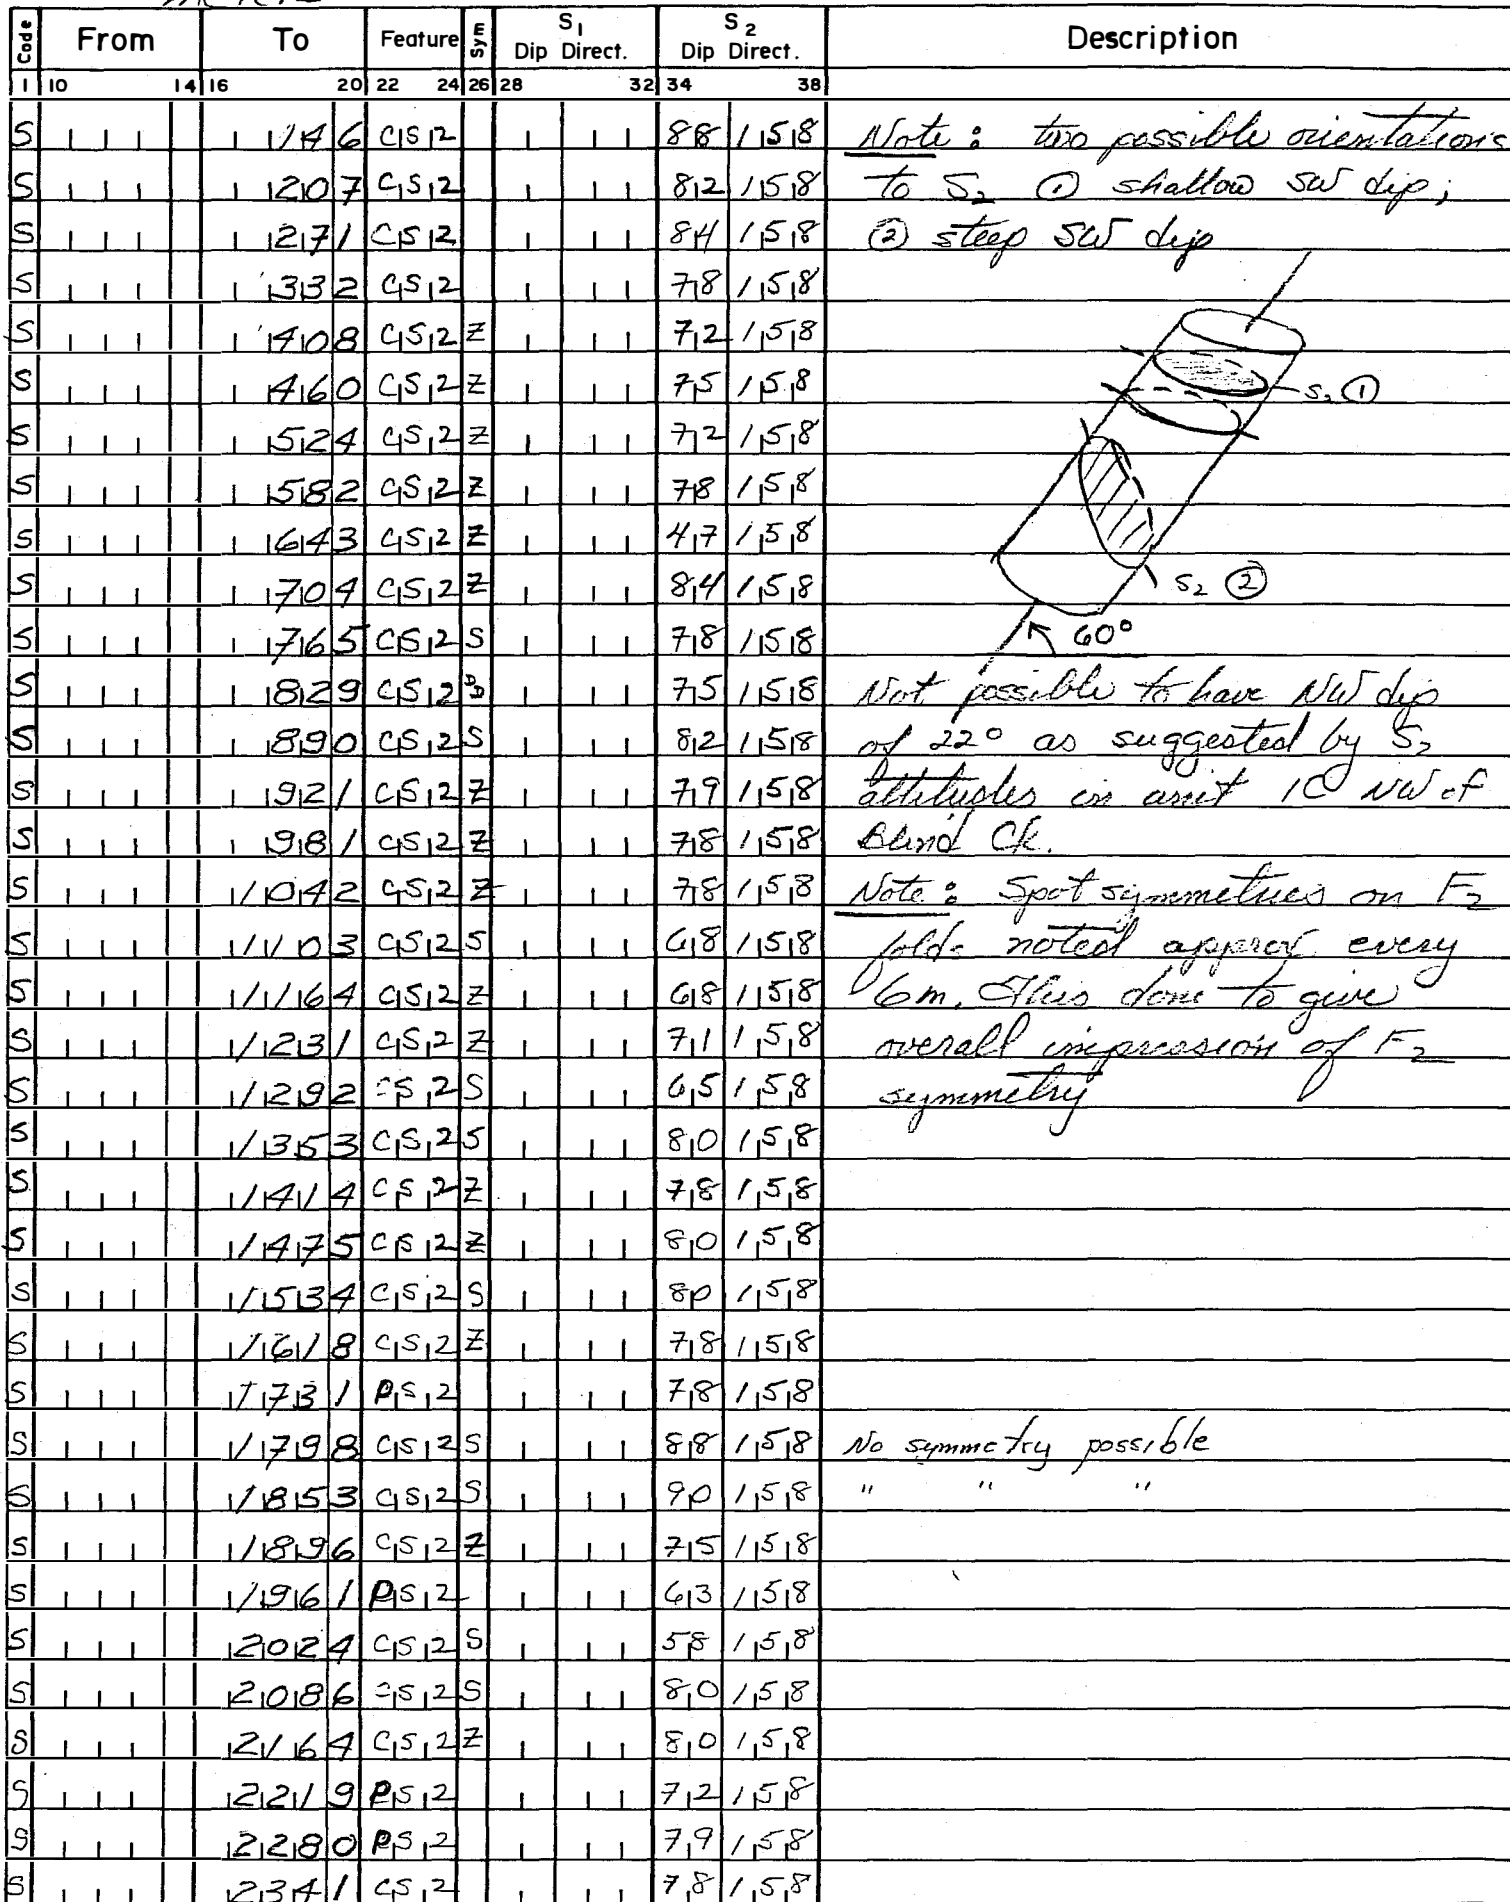 Code From To Feature Sym S1 Dip Direct. S2 Dip Direct. Description
1 10 14 16 20 22 24 26 28 32 34 38
S 146 CS2 88 158 Note: two possible orientations
S 207 CS2 82 158 to S2 ① shallow SW dip;
S 271 CS2 84 158 ② steep SW dip
S 332 CS2 78 158
S 408 CS2 Z 72 158
S 460 CS2 Z 75 158 S2 ①
S 524 CS2 Z 72 158
S 582 CS2 Z 78 158
S 643 CS2 Z 47 158
S 704 CS2 Z 84 158 S2 ②
S 765 CS2 S 78 158 60°
S 829 CS2 75 158 Not possible to have NW dip
S 890 CS2 S 82 158 of 22° as suggested by S2
S 921 CS2 Z 79 158 attitudes in unit 1C NW of
S 981 CS2 Z 78 158 Blind Ck.
S 1042 CS2 Z 78 158 Note: Spot symmetries on F2
S 1103 CS2 S 68 158 folds noted approx every
S 1164 CS2 Z 68 158 6m. This done to give
S 1231 CS2 Z 71 158 overall impression of F2
S 1292 CS2 S 65 158 symmetry
S 1353 CS2 S 80 158
S 1414 CS2 Z 78 158
S 1475 CS2 Z 80 158
S 1534 CS2 S 80 158
S 1618 CS2 Z 78 158
S 1731 PS2 78 158
S 1798 CS2 S 88 158 No symmetry possible
S 1853 CS2 S 90 158 " " "
S 1896 CS2 Z 75 158
S 1961 PS2 63 158
S 2024 CS2 S 58 158
S 2086 CS2 S 80 158
S 2164 CS2 Z 80 158
S 2219 PS2 72 158
S 2280 PS2 79 158
S 2341 CS2 78 158